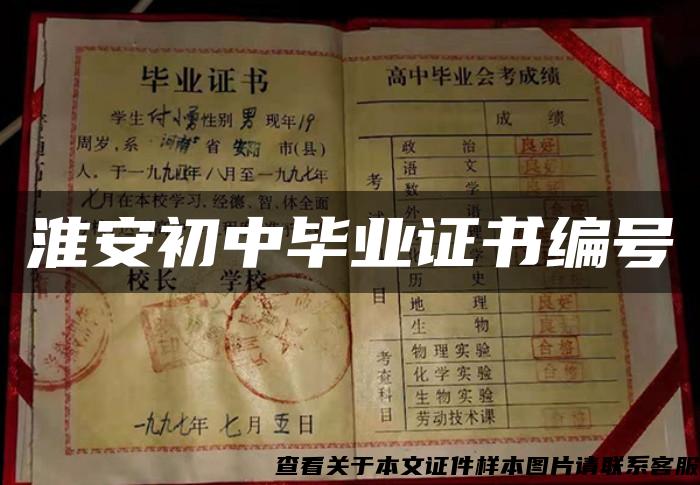 毕业证书
学生付小勇性别男现年19
周岁,系河南省安阳市(县)
人,于一九九四年八月至一九九七年
七月在本校学习,经德、智、体全面
校长 学校
一九九七年七月五日
高中毕业会考成绩
成绩
考试
政治 良好
语文 良好
数学 合格
外语
化学
历史 合格
地理 良好
生物 良好
目
考查科目
物理实验 合格
化学实验 合格
生物实验
劳动技术课 合格
淮安初中毕业证书编号
查看关于本文证件样本图片请联系客服